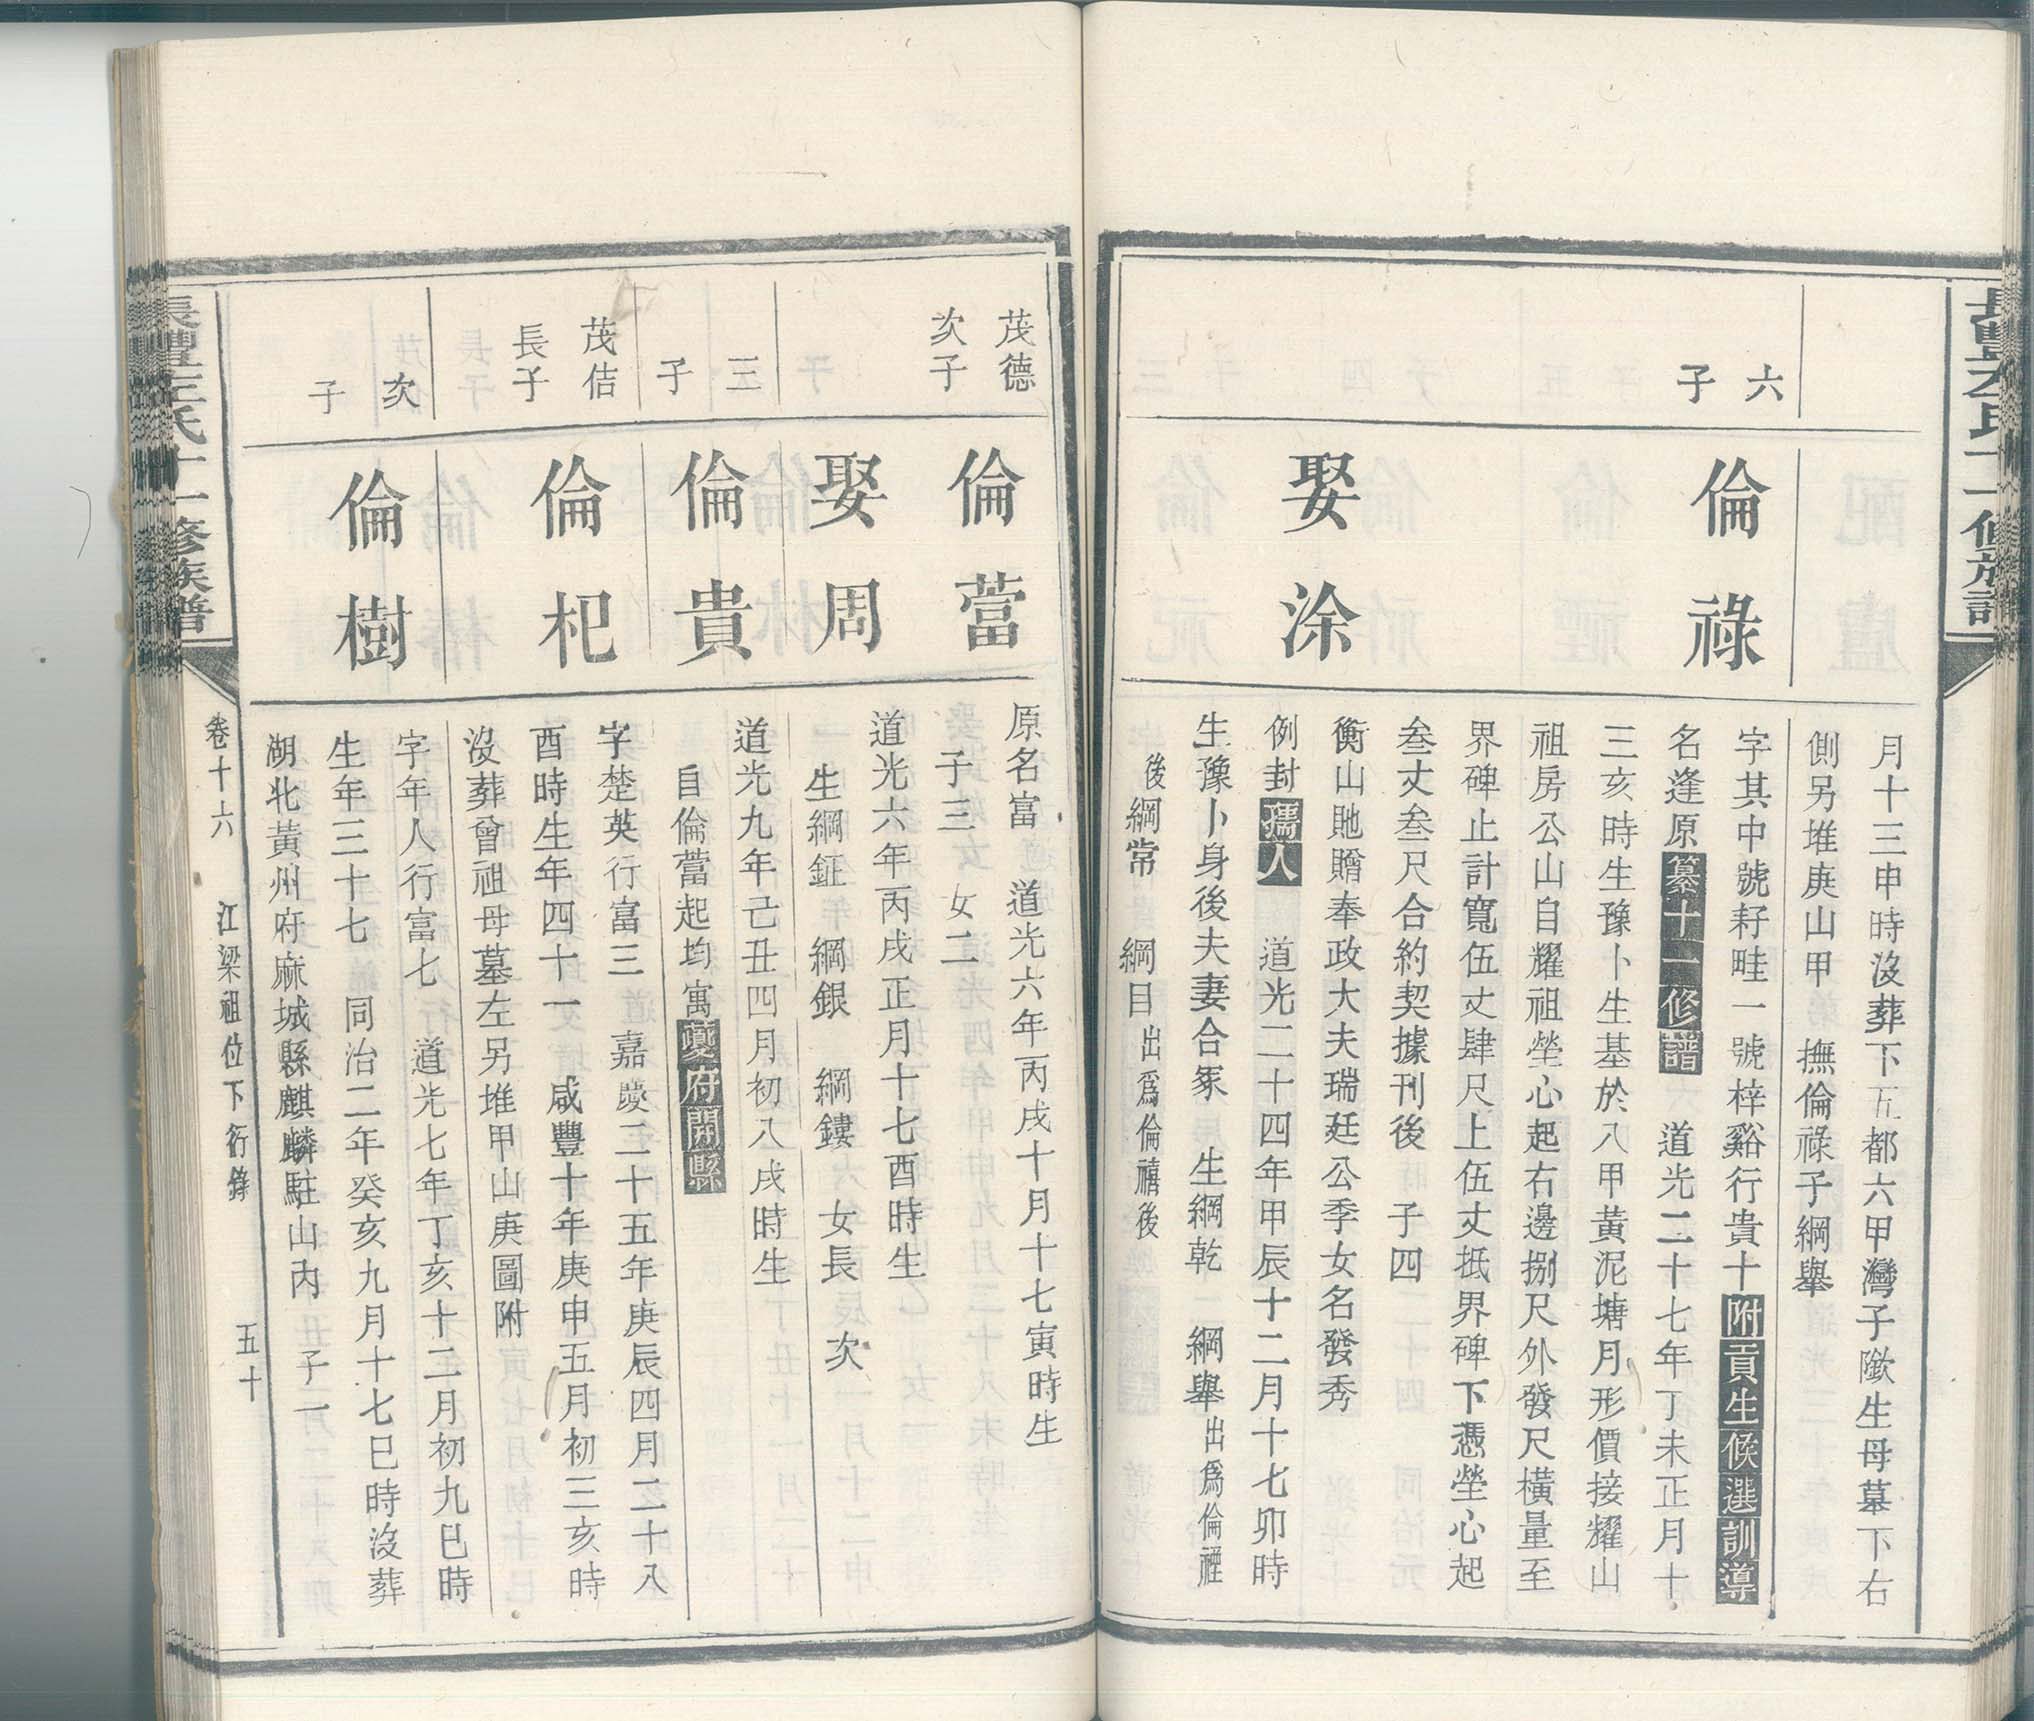 月十三申時沒葬下五都六甲灣子歐生母墓下右
側另堆庚山甲　撫倫祿子綱舉
六子
倫祿
字其中號籽畦一號梓谿行貴十附貢生候選訓導
名逢原纂十一修譜　道光二十七年丁未正月十
三亥時生豫卜生基於八甲黃泥塘月形價接耀山
祖房公山自耀祖塋心起右邊捌尺外發尺橫量至
界碑止計寬伍丈肆尺上伍丈抵界碑下憑塋心起
叁丈叁尺合約契據刊後　子四
娶涂
衡山貤贈奉政大夫瑞廷公季女名發秀
例封孺人　道光二十四年甲辰十二月十七卯時
生豫卜身後夫妻合冢　生綱乾　綱舉出爲倫禋
後　綱常　綱目出爲倫禧後
茂德次子
倫蕾
原名富　道光六年丙戌十月十七寅時生
子三　女二
娶周
道光六年丙戌正月十七酉時生
生綱鉦　綱銀　綱鏤　女長　次
三子
倫貴
道光九年己丑四月初八戌時生
自倫蕾起均寓夔府開縣
茂佶長子
倫杞
字楚英行富三　嘉慶二十五年庚辰四月二十八
酉時生年四十一　咸豐十年庚申五月初三亥時
沒葬曾祖母墓左另堆甲山庚圖附
次子
倫樹
字年人行富七　道光七年丁亥十二月初九巳時
生年三十七　同治二年癸亥九月十七巳時沒葬
湖北黃州府麻城縣麒麟駐山內　子一
長豐左氏十一修族譜
卷十六　江梁祖位下衍錄　五十